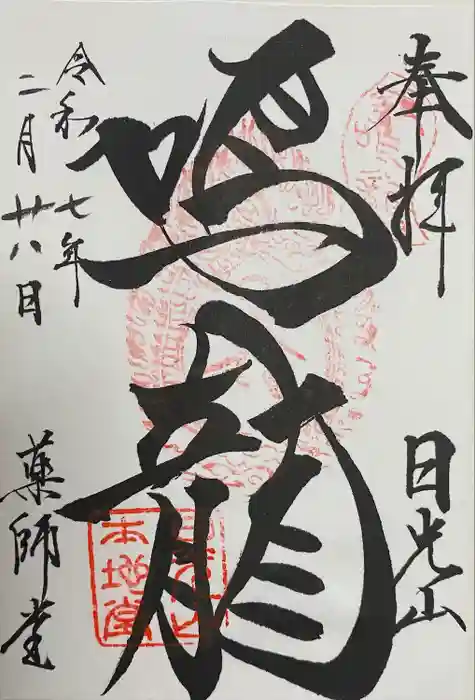 奉拝
日光山
鳴龍
令和七年
二月廿八日
薬師堂
本地堂